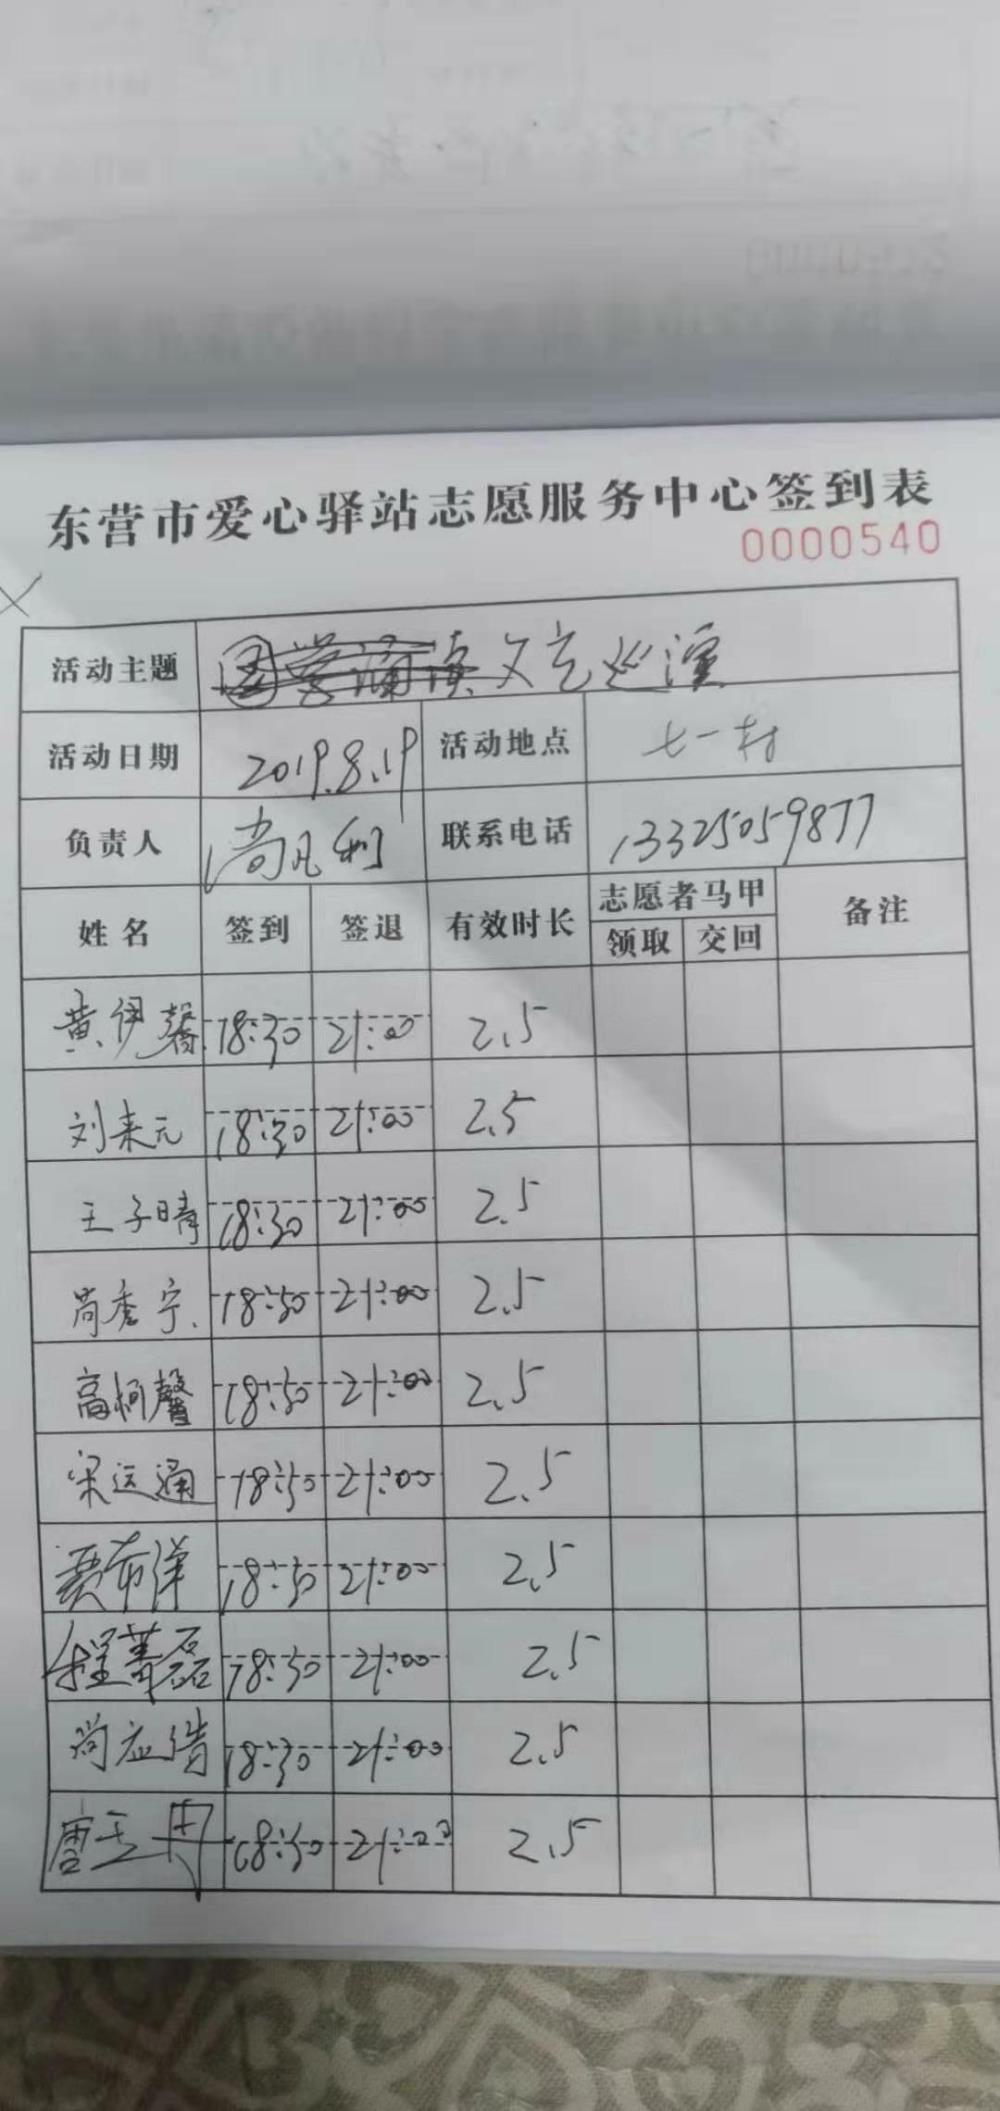 东营市爱心驿站志愿服务中心签到表
0000540
活动主题 文艺巡演
活动日期 2019.8.19 活动地点 七一村
负责人 尚凡利 联系电话 13325059877
姓名 签到 签退 有效时长 志愿者马甲 备注
领取 交回
黄伊馨 18:30 21:00 2.5
刘来元 18:30 21:00 2.5
王子晴 18:30 21:00 2.5
尚秀宁 18:30 21:00 2.5
高柯馨 18:30 21:00 2.5
梁运通 18:30 21:00 2.5
贾希洋 18:30 21:00 2.5
程菁磊 18:30 21:00 2.5
尚应浩 18:30 21:00 2.5
唐玉丹 18:30 21:00 2.5